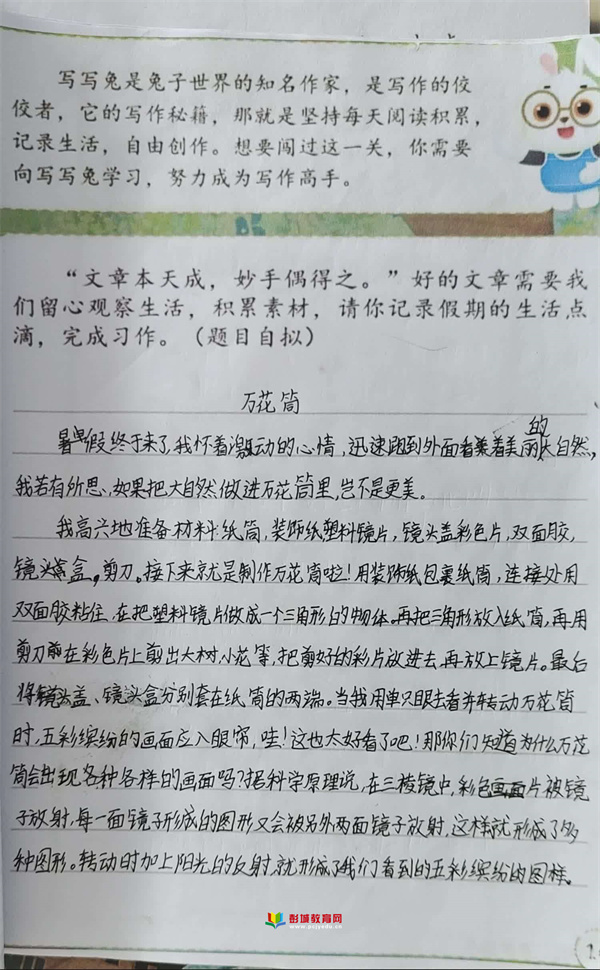 写写兔是兔子世界的知名作家，是写作的佼
佼者，它的写作秘籍，那就是坚持每天阅读积累，
记录生活，自由创作。想要闯过这一关，你需要
向写写兔学习，努力成为写作高手。
“文章本天成，妙手偶得之。”好的文章需要我
们留心观察生活，积累素材，请你记录假期的生活点
滴，完成习作。（题目自拟）
万花筒
暑假终于来了，我怀着激动的心情，迅速跑到外面看着美丽的大自然，
我若有所思，如果把大自然做进万花筒里，岂不是更美。
我高兴地准备材料：纸筒，装饰纸塑料镜片，镜头盖彩色片，双面胶，
镜头盒，剪刀。接下来就是制作万花筒啦！用装饰纸包裹纸筒，连接处用
双面胶粘住，在把塑料镜片做成一个三角形的物体。再把三角形放入纸筒，再用
剪刀在彩色片上剪出大树，小花等，把剪好的彩片放进去，再放上镜片。最后
将镜头盖、镜头盒分别套在纸筒的两端。当我用单只眼去看并转动万花筒
时，五彩缤纷的画面应入眼帘，哇！这也太好看了吧！那你们知道为什么万花
筒会出现各种各样的画面吗？据科学原理说，在三棱镜中，彩色片被镜
子放射，每一面镜子形成的图形又会被另外两面镜子放射，这样就形成了多
种图形。转动时加上阳光的反射，就形成了我们看到的五彩缤纷的图样。
彭城教育网
www.pcjyedu.cn